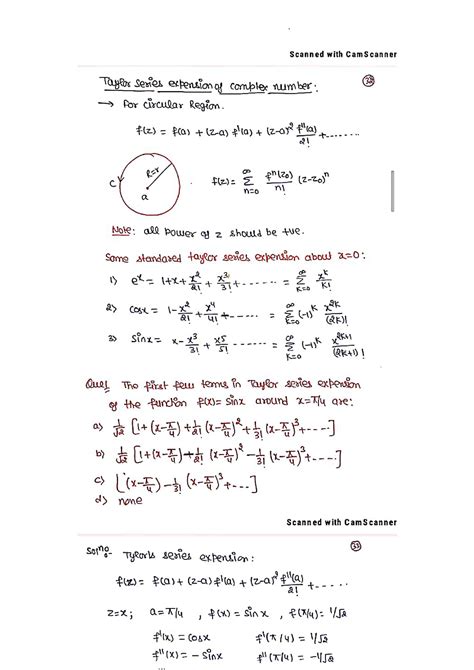 Scanned with CamScanner
Taylor series expension of complex number:
32
→ For circular Region.
f(z) = f(a) + (z-a) f'(a) + (z-a)² f''(a)/2! + .......
C R=r a
f(z) = ∞ Σ n=0 fⁿ(z₀)/n! (z-z₀)ⁿ
Note: all power of z should be +ve.
Some standard taylor series expension about x=0:
1) eˣ = 1+x+ x²/2! + x³/3! + ------ = ∞ Σ k=0 xᵏ/k!
2) cosx = 1- x²/2! + x⁴/4! + ----- = ∞ Σ k=0 (-1)ᵏ x²ᵏ/(2k)!
3) sinx = x- x³/3! + x⁵/5! ------ = ∞ Σ k=0 (-1)ᵏ x²ᵏ⁺¹/(2k+1)!
Ques The first few terms in Taylor series expension
of the function f(x)= sinx around x=π/4 are:
a) 1/√2 [1+(x-π/4)+ 1/2! (x-π/4)² + 1/3! (x-π/4)³+----]
b) 1/√2 [1+(x-π/4) - 1/2! (x-π/4)² - 1/3! (x-π/4)³+----]
c) [(x-π/4) - 1/3! (x-π/4)³+---]
d) none
Scanned with CamScanner
33
Solno- Tylorls series expension:
f(z) = f(a) + (z-a) f'(a) + (z-a)² f''(a)/2! + -----
z=x; a=π/4 , f(x) = sinx , f(π/4) = 1/√2
f'(x) = cosx f'(π/4) = 1/√2
f''(x) = - sinx f''(π/4) = -1/√2